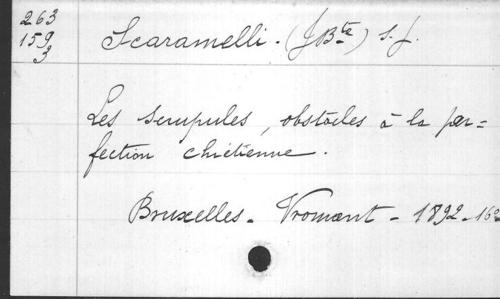 263
159
3
Scaramelli. (J Bte) S. J.
Les scrupules, obstacles à la per=
fection chrétienne.
Bruxelles - Vromant - 1892 - 16°